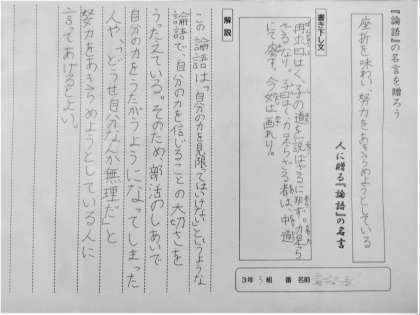 『論語』の名言を贈ろう
座折を味わい努力をあきらめようとしている
人に贈る『論語』の名言
書き下し文
再求曰はく、子の道を説ばざるに非ず。力足ら
ざるなり。子曰はく、力足らざる者は、中道
にて廃す。今女は画れり。
解説
この論語は、「自分の力を見限ってはいけない」というような
論語で、自分の力を信じることの大切さを
うったえている。そのため部活のしあいで
自分の力をうたがうようになってしまった
人や、「どうせ自分なんか無理だ」と
努力をあきらめようとしている人に
言ってあげるとよい。
3年 5組 番 名前